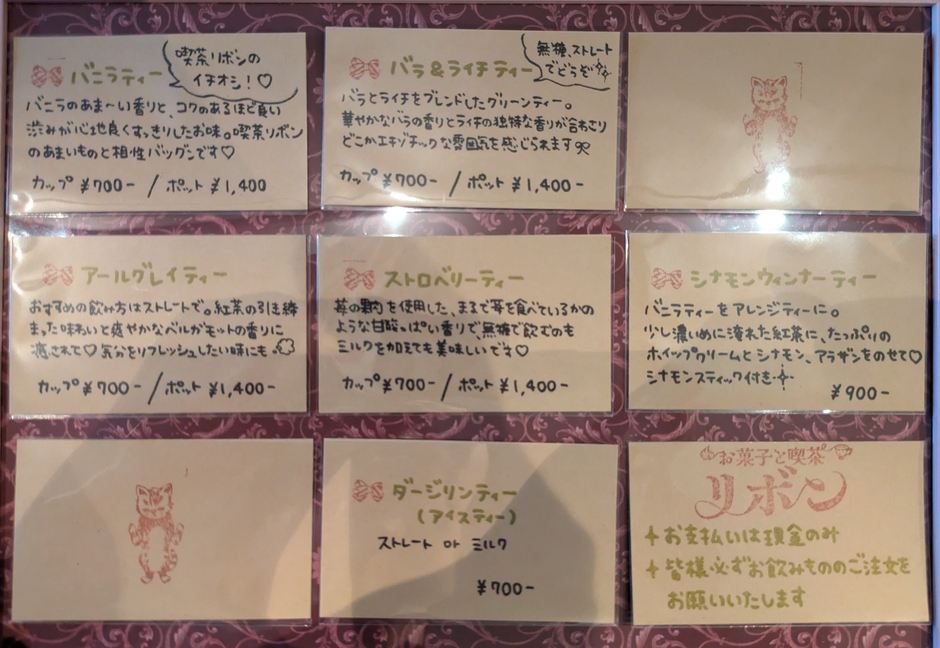 バニラティー
喫茶リボンの
イチオシ！♡
バニラのあま〜い香りと、コクのあるほど良い
渋みが心地良くすっきりしたお味。喫茶リボン
のあまいものと相性バツグンです♡
カップ ¥700- / ポット ¥1,400
バラ&ライチティー
無糖、ストレート
でどうぞ
バラとライチをブレンドしたグリーンティー。
華やかなバラの香りとライチの独特な香りが合わさり
どこかエキゾチックな雰囲気を感じられます
カップ ¥700- / ポット ¥1,400-
アールグレイティー
おすすめの飲み方はストレートで。紅茶の引き締
まった味わいと爽やかなベルガモットの香りに
癒されて♡ 気分をリフレッシュしたい時にも
カップ ¥700- / ポット ¥1,400-
ストロベリーティー
苺の果肉を使用した、まるで苺を食べているかの
ような甘酸っぱい香りで、無糖で飲むのも
ミルクを加えても美味しいです♡
カップ ¥700- / ポット ¥1,400-
シナモンウィンナーティー
バニラティーをアレンジティーに。
少し濃いめに淹れた紅茶に、たっぷりの
ホイップクリームとシナモン、アラザンをのせて♡
シナモンスティック付き
¥900-
ダージリンティー
(アイスティー)
ストレート or ミルク
¥700-
お菓子と喫茶
リボン
お支払いは現金のみ
皆様必ずお飲みもののご注文を
お願いいたします